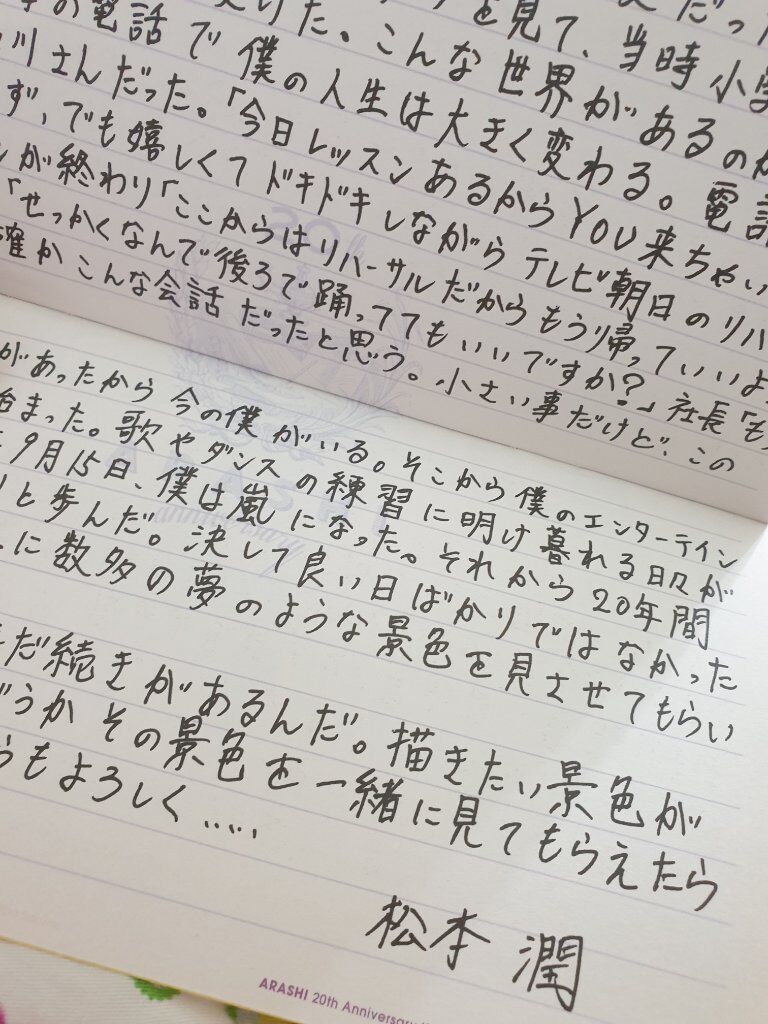 の電話で僕の人生は大きく変わる。電話
川さんだった。「今日レッスンあるからYOU来ちゃい
ず、でも嬉しくてドキドキしながらテレビ朝日のリハ
が終わり「ここからはリハーサルだからもう帰っていいよ
「せっかくなんで後ろで踊っててもいいですか?」社長「も
確かこんな会話だったと思う。小さい事だけど、この
があったから今の僕がいる。そこから僕のエンターテイン
始まった。歌やダンスの練習に明け暮れる日々が
9月15日、僕は嵐になった。それから20年間
と歩んだ。決して良い日ばかりではなかった
に数多の夢のような景色を見させてもらい
だ続きがあるんだ。描きたい景色が
うかその景色を一緒に見てもらえたら
もよろしく.....
松本 潤
ARASHI 20th Anniversary